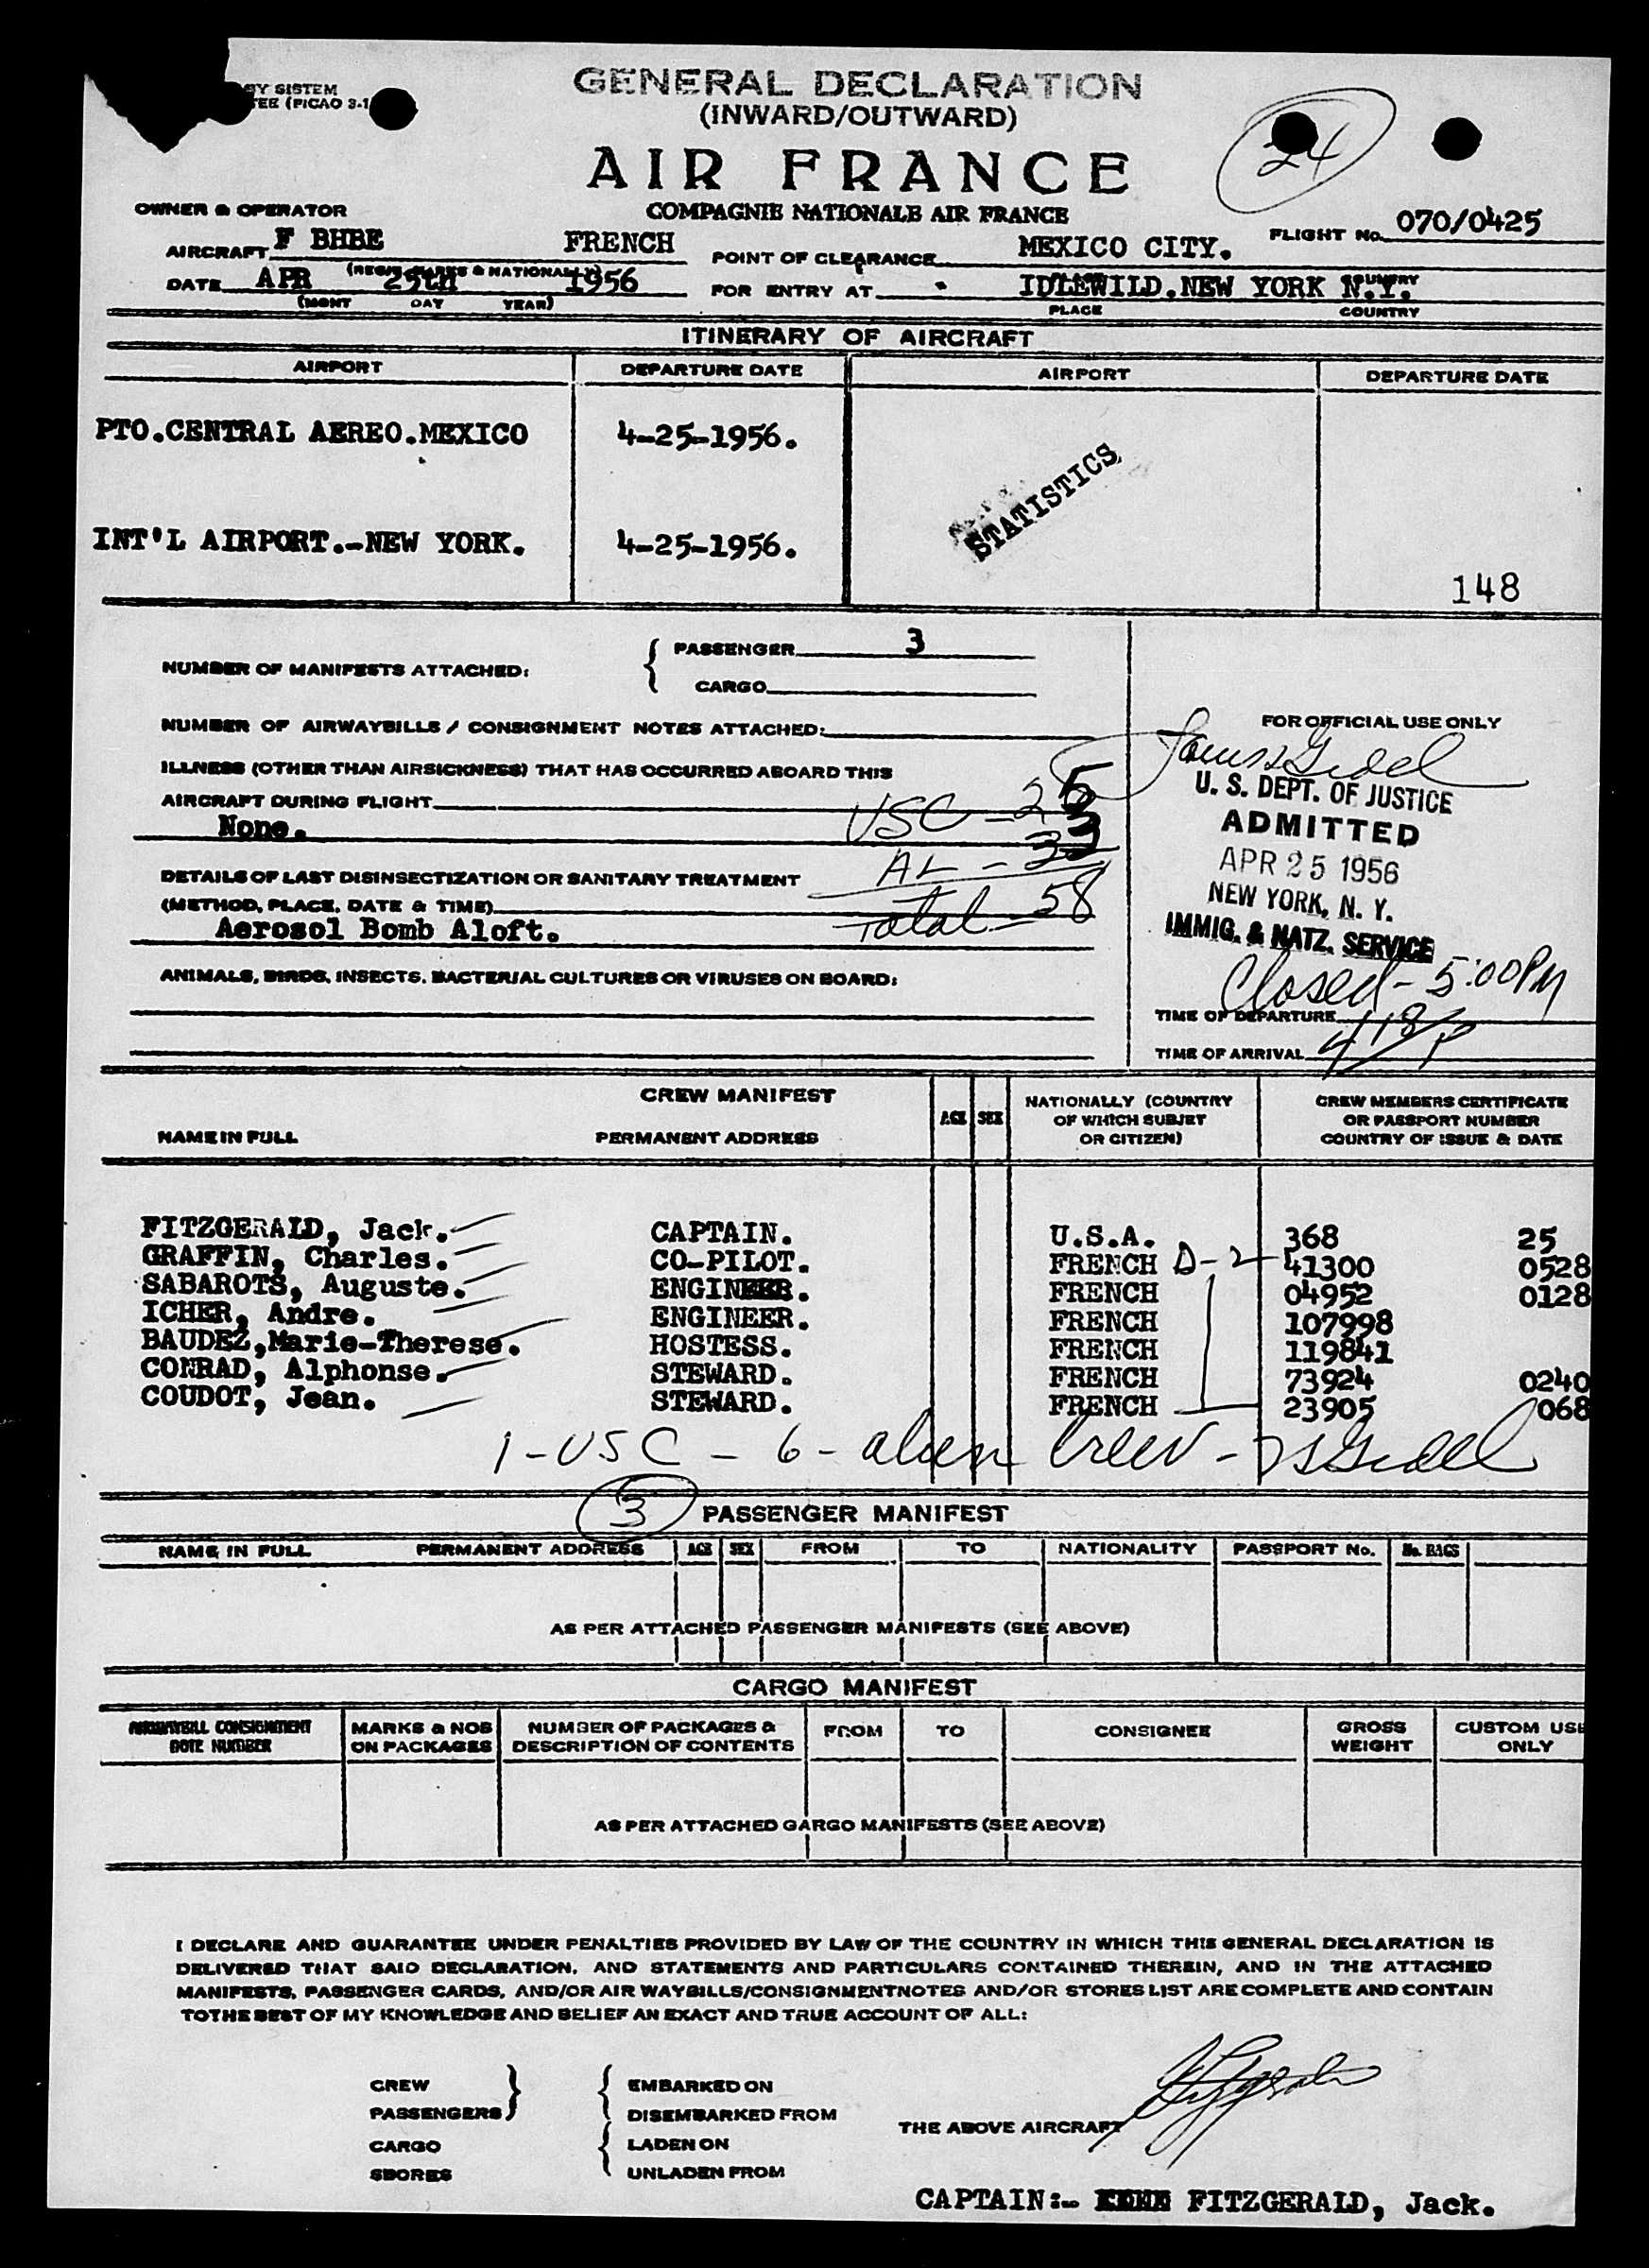 BY SISTEM
TEE (PICAO 3-1
GENERAL DECLARATION
(INWARD/OUTWARD)
24
AIR FRANCE
COMPAGNIE NATIONALE AIR FRANCE
OWNER & OPERATOR
AIRCRAFT F BHBE FRENCH
(REGIS. MARKS & NATIONALITY)
POINT OF CLEARANCE MEXICO CITY.
FLIGHT No. 070/0425
DATE APR 25th 1956
(MONT DAY YEAR)
PLACE COUNTRY
FOR ENTRY AT IDLEWILD.NEW YORK N.Y.
PLACE COUNTRY
ITINERARY OF AIRCRAFT
AIRPORT DEPARTURE DATE AIRPORT DEPARTURE DATE
PTO.CENTRAL AEREO.MEXICO 4-25-1956.
STATISTICS
INT'L AIRPORT.-NEW YORK. 4-25-1956.
148
NUMBER OF MANIFESTS ATTACHED:
PASSENGER 3
CARGO
NUMBER OF AIRWAYBILLS / CONSIGNMENT NOTES ATTACHED:
ILLNESS (OTHER THAN AIRSICKNESS) THAT HAS OCCURRED ABOARD THIS
AIRCRAFT DURING FLIGHT
None.
USC - 25
AL - 33
Total - 58
DETAILS OF LAST DISINSECTIZATION OR SANITARY TREATMENT
(METHOD, PLACE, DATE & TIME)
Aerosol Bomb Aloft.
ANIMALS, BIRDS, INSECTS, BACTERIAL CULTURES OR VIRUSES ON BOARD:
FOR OFFICIAL USE ONLY
U. S. DEPT. OF JUSTICE
ADMITTED
APR 25 1956
NEW YORK, N. Y.
IMMIG. & NATZ. SERVICE
Closed - 5:00PM
TIME OF DEPARTURE
TIME OF ARRIVAL 418P
CREW MANIFEST
NAME IN FULL PERMANENT ADDRESS AGE SEX NATIONALLY (COUNTRY
OF WHICH SUBJET
OR CITIZEN)
CREW MEMBERS CERTIFICATE
OR PASSPORT NUMBER
COUNTRY OF ISSUE & DATE
FITZGERALD, Jack. CAPTAIN. U.S.A. 368 25
GRAFFIN, Charles. CO-PILOT. FRENCH D-2 41300 0528
SABAROTS, Auguste. ENGINEER. FRENCH 04952 0128
ICHER, Andre. ENGINEER. FRENCH 107998
BAUDEZ,Marie-Therese. HOSTESS. FRENCH 119841
CONRAD, Alphonse. STEWARD. FRENCH 73924 0240
COUDOT, Jean. STEWARD. FRENCH 23905 068
1-USC - 6-alien crew -
3
PASSENGER MANIFEST
NAME IN FULL PERMANENT ADDRESS AGE SEX FROM TO NATIONALITY PASSPORT No. No. BAGS
AS PER ATTACHED PASSENGER MANIFESTS (SEE ABOVE)
CARGO MANIFEST
AIRWAYBILL CONSIGNMENT
NOTE NUMBER
MARKS & NOS
ON PACKAGES
NUMBER OF PACKAGES &
DESCRIPTION OF CONTENTS
FROM TO CONSIGNEE
GROSS
WEIGHT
CUSTOM USE
ONLY
AS PER ATTACHED CARGO MANIFESTS (SEE ABOVE)
I DECLARE AND GUARANTEE UNDER PENALTIES PROVIDED BY LAW OF THE COUNTRY IN WHICH THIS GENERAL DECLARATION IS
DELIVERED THAT SAID DECLARATION, AND STATEMENTS AND PARTICULARS CONTAINED THEREIN, AND IN THE ATTACHED
MANIFESTS, PASSENGER CARDS, AND/OR AIR WAYBILLS/CONSIGNMENTNOTES AND/OR STORES LIST ARE COMPLETE AND CONTAIN
TOTHE BEST OF MY KNOWLEDGE AND BELIEF AN EXACT AND TRUE ACCOUNT OF ALL:
CREW
PASSENGERS
CARGO
SBORES
EMBARKED ON
DISEMBARKED FROM
LADEN ON
UNLADEN FROM
THE ABOVE AIRCRAFT
CAPTAIN:- FITZGERALD, Jack.